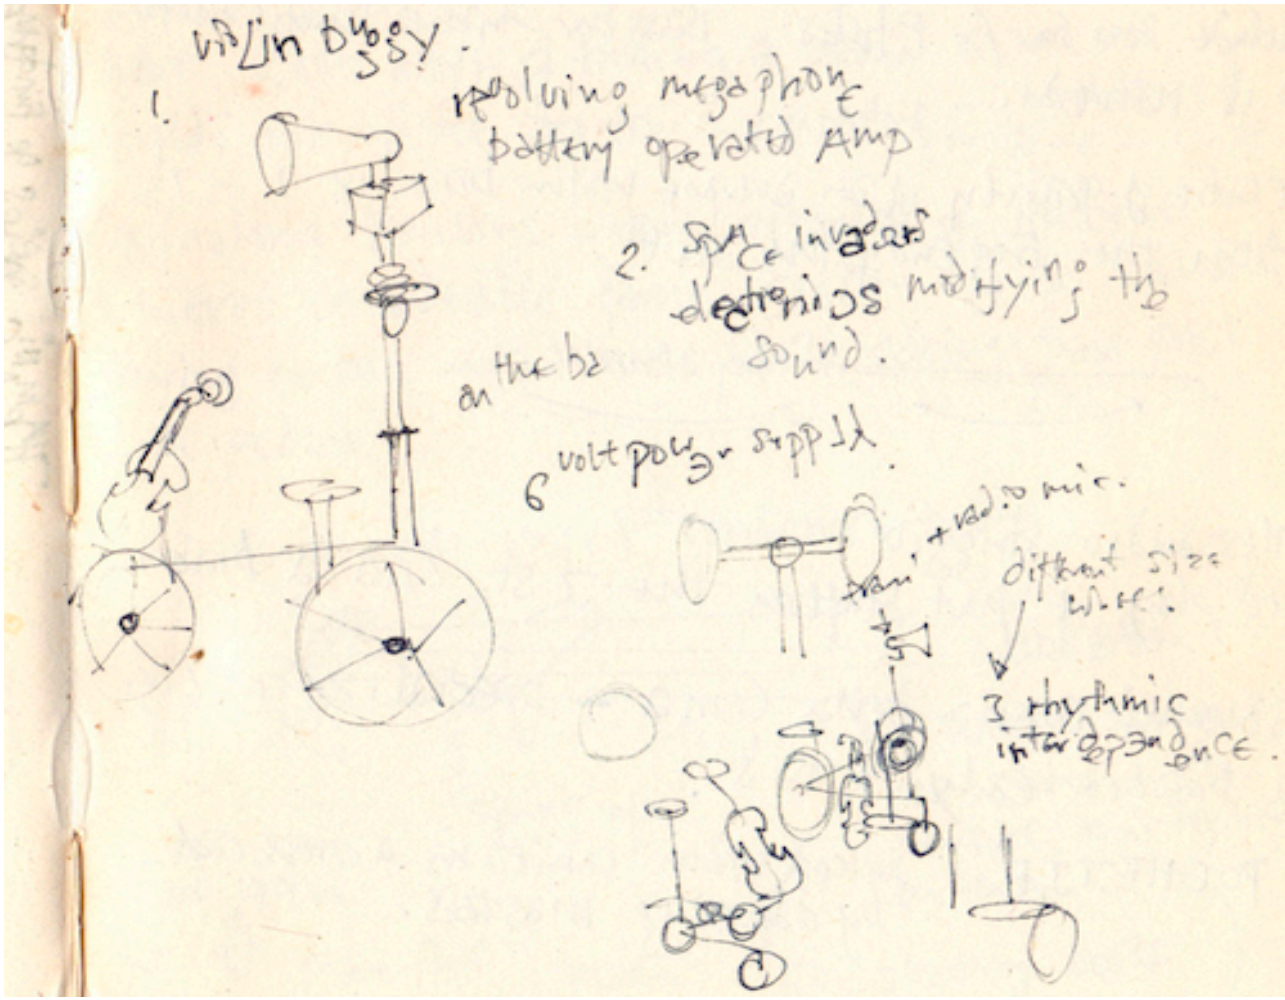 violin buggy.
1.
revolving megaphone
battery operated Amp
2. SpAce invaders
electronics modifying the
sound.
on the ba
6 volt power supply
+ radio mic.
different size
3 rhythmic
interdependence.